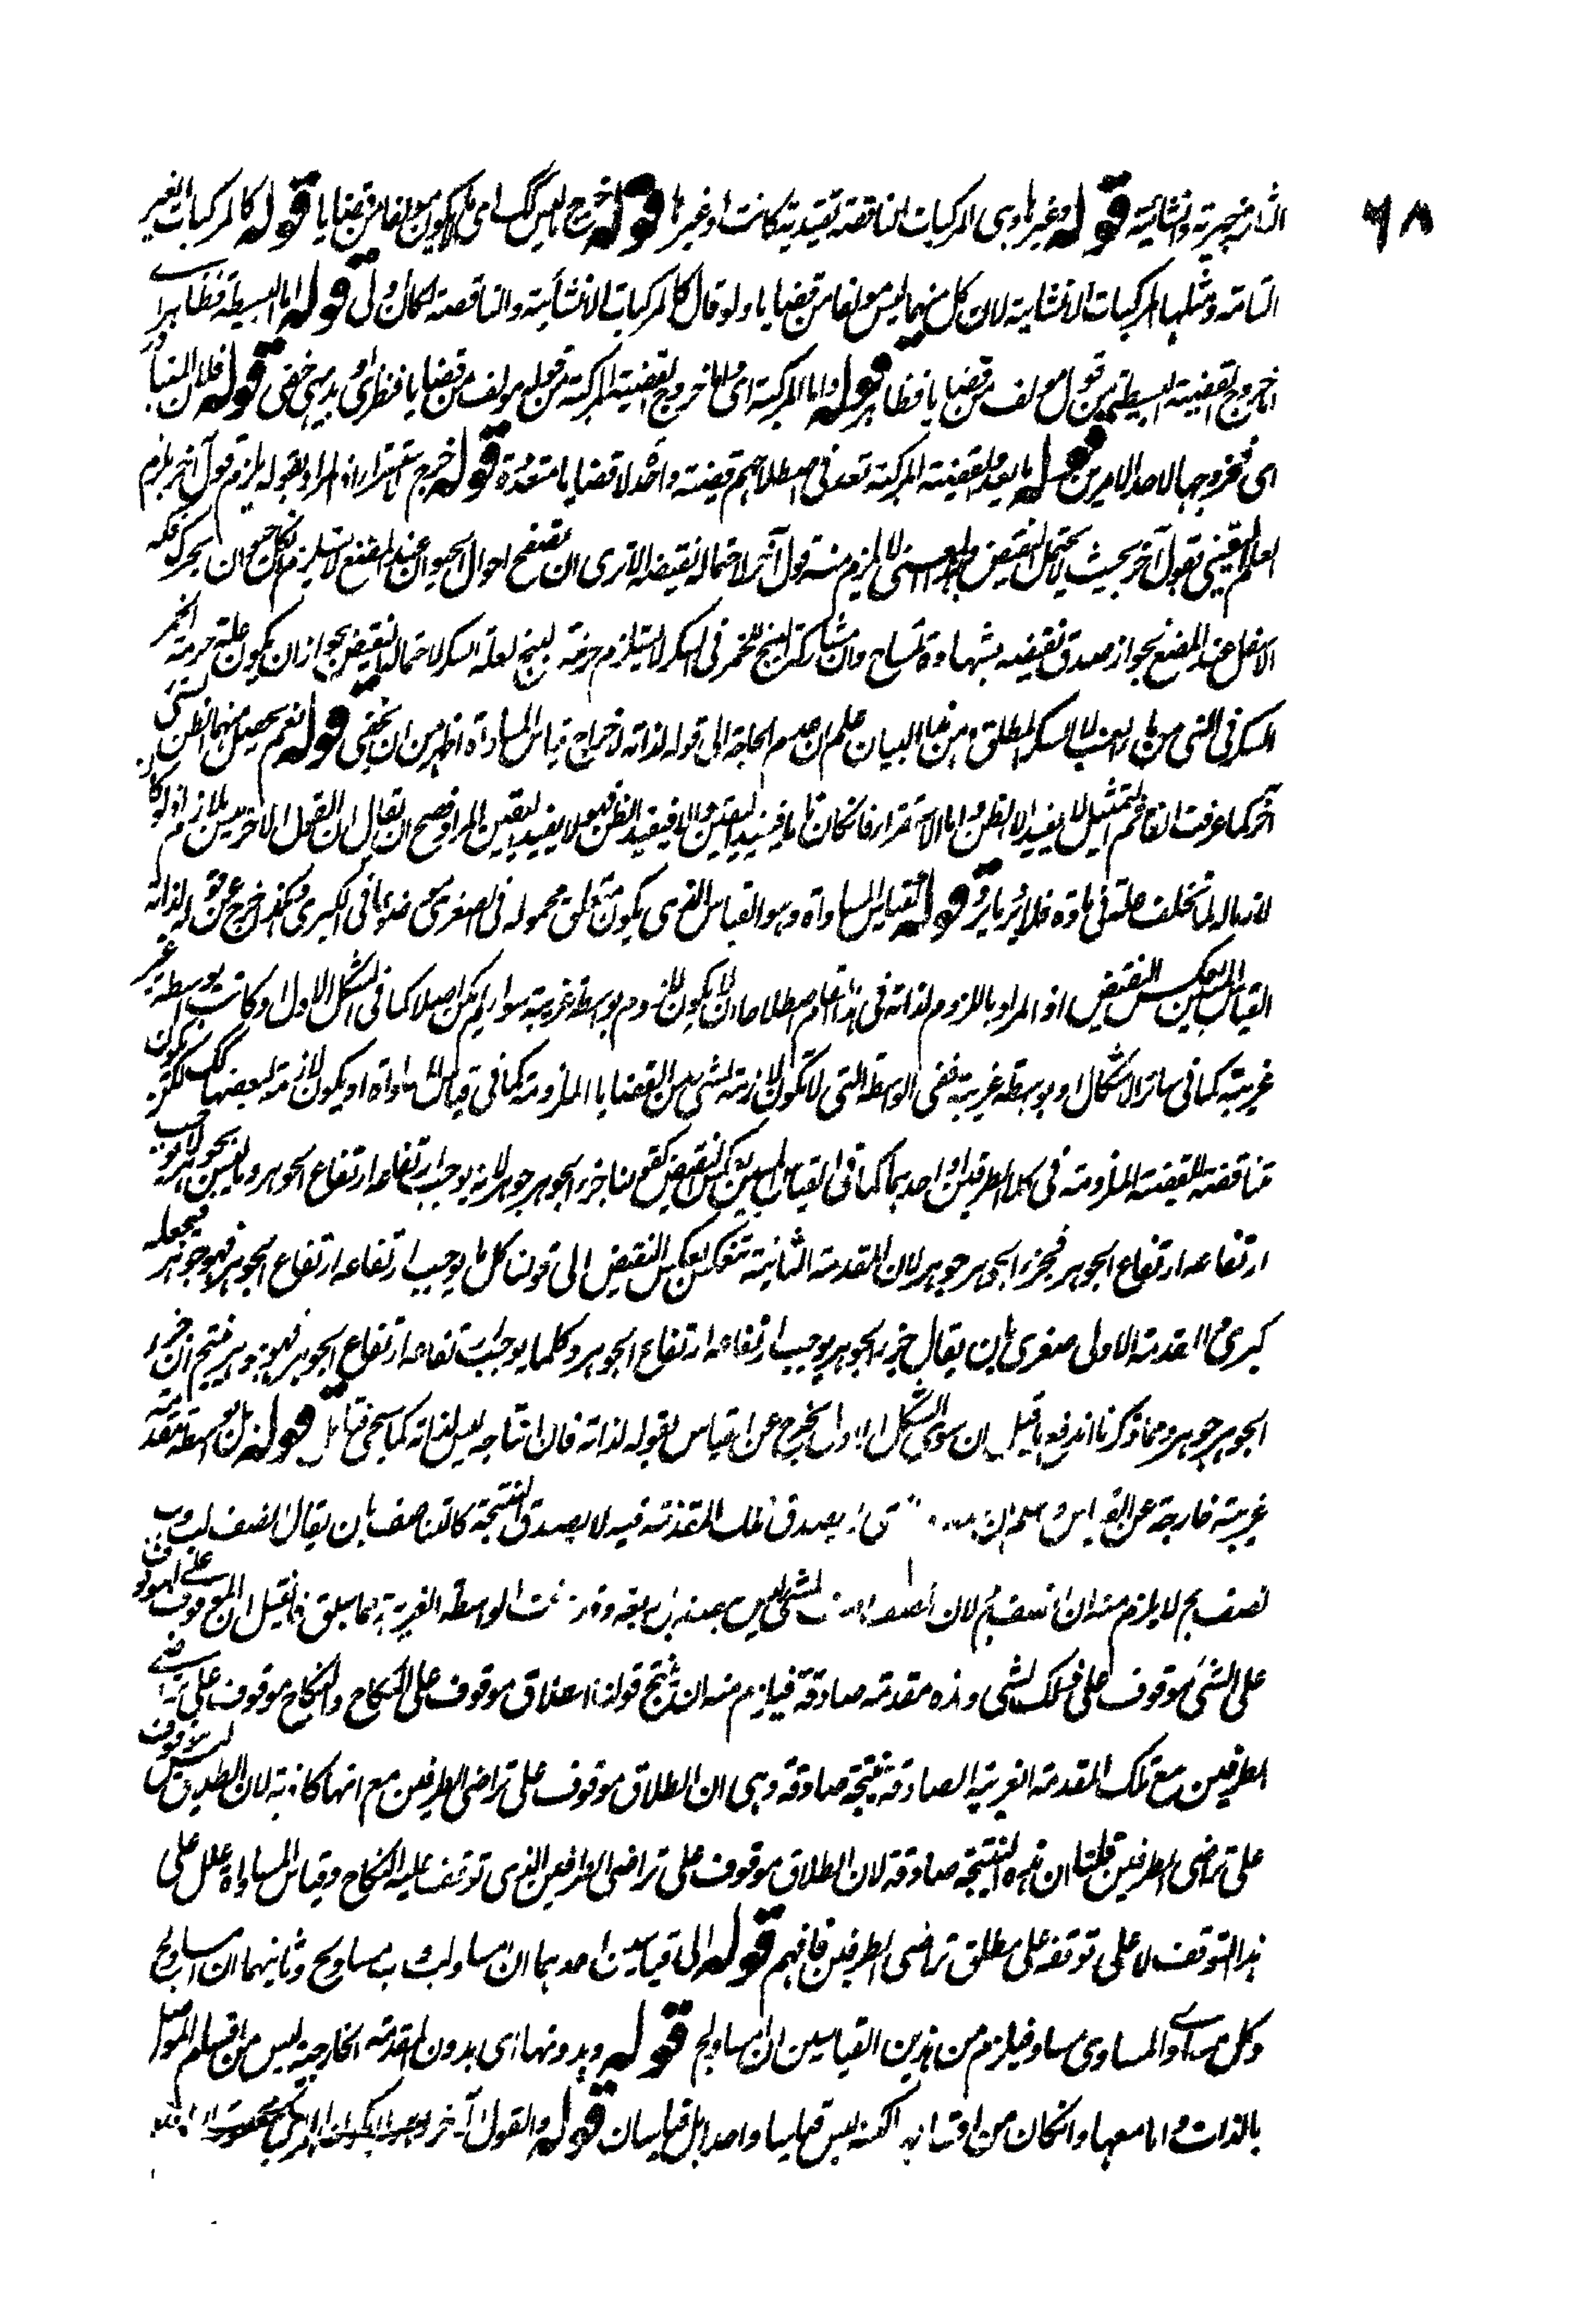 ٦٨
التامة خبرية وانشائية قوله وغيرها وهى المركبات الناقصة تقييدية كانت او غيرها قوله خرج ما ليس كك اى ما لا يكون مؤلفا من قضايا قوله كالمركبات الغير
التامة ومثلها المركبات الانشائية لان كل منهما ليس مؤلفا من قضايا ولو قال كالمركبات الانشائية والناقصة لكان اولى قوله اما البسيطة فظاهر اى
اما خروج القضية البسيطة من قول مؤلف من قضايا فظاهر قوله واما المركبة اى واما خروج القضية المركبة من قوله مؤلف من قضايا فنظرى او بديهى خفى قوله فلان المتبادر
اى فخروجها لاحد الامرين قوله ما يعد القضية المركبة تعد فى اصطلاحهم قضية واحدة لا قضايا متعددة قوله خرج الاستقراء اذ المراد بقوله يلزم قول آخر يلزم
العلم اليقينى بقول آخر بحيث لا يحتمل النقيض وبهذا المعنى لا يلزم منه قول آخر لاحتمال نقيضه الا ترى ان تصفح احوال الحيوان عند المضغ لا يستلزم كل حيوان يحرك فكه
الاسفل عند المضغ بجواز صدق نقيضه بشهادة تمساح وان مشاركة البنج للخمر فى السكر لا يستلزم حرمة البنج لعلة السكر لاحتمال النقيض بجواز ان يكون علة حرمة الخمر
السكر فى الشى من ماء العنب لا السكر المطلق ومن هذا البيان علم ان عدم الحاجة الى قوله لذاته لاخراج قياس المساواة اظهر من ان يخفى قوله نعم يحصل منهما الظن بشئ
آخر كما عرفت انفا فى التمثيل لا يفيد الا الظن واما الاستقراء فان كان تاما يفيد اليقين والا فيفيد الظن فهو لا يفيد اليقين المراد فصح ان يقال ان القول الآخر ليس بلازم اذ لو كان
لازما له لما تخلف عنه فى مادة فلا يرد ما يرد قوله القياس المساواة وهو القياس الذى يكون متعلق محموله فى الصغرى موضوعا فى الكبرى وكذا خرج عن قوله لذاته
القياس المبين بعكس النقيض اذ المراد باللزوم لذاته فى هذا المقام اصطلاحا ان لا يكون اللزوم بواسطة غريبة سواء لم يكن اصلا كما فى الشكل الاول او كانت بواسطة غير
غريبة كما فى سائر الاشكال او بواسطة غريبة فهى الواسطة التى لا تكون لازمة لشئ من القضايا الملزومة كما فى قياس المساواة او يكون لازمة لبعضها لكن يكون
مناقضة للقضية الملزومة فى كلا الطرفين او احدهما كما فى القياس المبين بعكس النقيض كقولنا جزء الجوهر جوهر لانه يوجب ارتفاعه ارتفاع الجوهر وما ليس بجوهر لا يوجب
ارتفاعه ارتفاع الجوهر فجزء الجوهر جوهر لان المقدمة الثانية تنعكس بعكس النقيض الى قولنا كل ما يوجب ارتفاعه ارتفاع الجوهر فهو جوهر فيجعله
كبرى والمقدمة الاولى صغرى بان يقال جزء الجوهر يوجب ارتفاعه ارتفاع الجوهر وكلما يوجب ارتفاعه ارتفاع الجوهر فهو جوهر فينتج ان جزء
الجوهر جوهر ومما ذكرنا اندفع ما قيل ان سوى الشكل الاول يخرج عن القياس بقوله لذاته فان انتاجه ليس لذاته كما سيجئ تامل قوله بل بواسطة مقدمة
غريبة خارجة عن القياس وعلم ان لا يصدق تلك المقدمة فيه لا يصدق النتيجة كالتناصف بان يقال ا نصف لب و ب
نصف لج لا يلزم منه ان ا نصف لج لان نصف النصف للشئ ليس بنصفه بل بربعه وقد الواسطة الغريبة مما سبق فان قيل ان الموقوف على الموقوف
على الشئ موقوف على ذلك الشى وهذه مقدمة صادقة فيلزم منه ان ينتج قولنا الطلاق موقوف على النكاح والنكاح موقوف على تراضى
الطرفين مع تلك المقدمة الغريبة الصادقة نتيجة صادقة وهى ان الطلاق موقوف على تراضى الطرفين مع انها كاذبة لان الطلاق ليس بموقوف
على تراضى الطرفين قلنا ان هذه النتيجة صادقة لان الطلاق موقوف على تراضى الطرفين الذى توقف عليه النكاح وقياس المساواة يدل على
هذا التوقف لا على توقفه على مطلق تراضى الطرفين فافهم قوله الى قياسين احدهما ان ا مساو لب و ب مساو لج وثانيهما ان ا مساو لمساوى ج
وكل مساوى المساوى مساو فيلزم من هذين القياسين ان ا مساو لج قوله وبدونها اى بدون المقدمة الخارجية ليس من اقسام الموصل
بالذات واما معها وان كان من اقسامه لكنه ليس قياسا واحدا بل قياسان قوله والقول الآخر